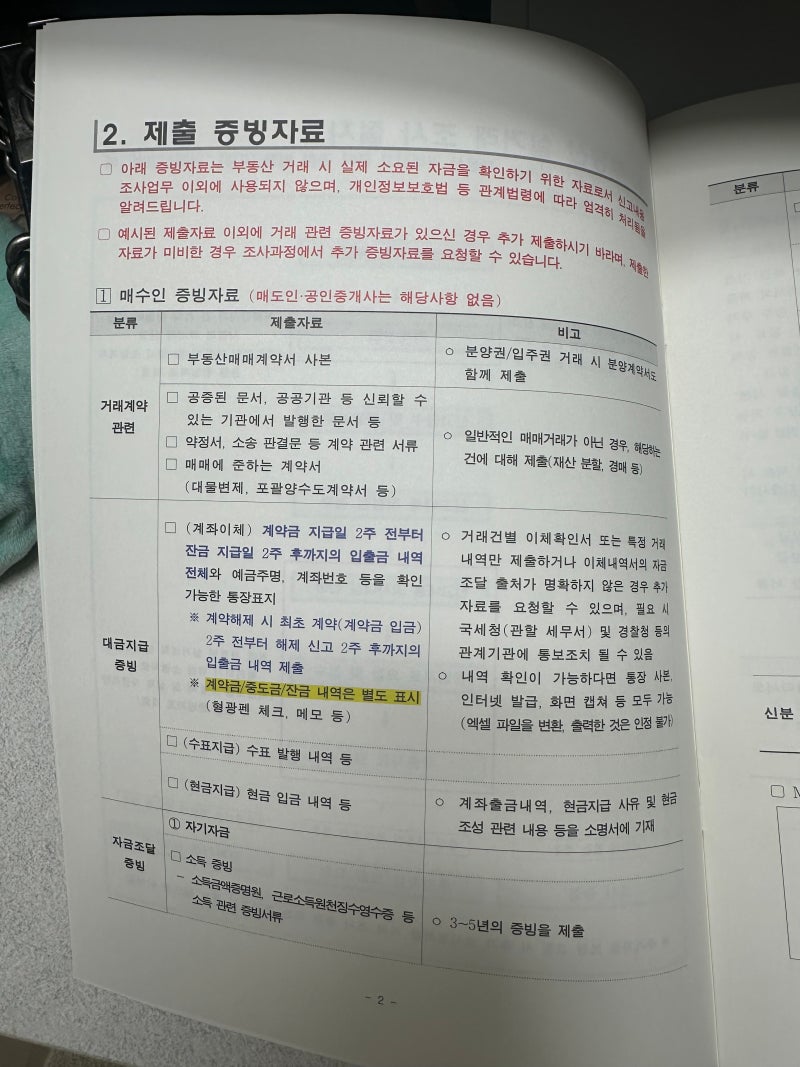 2. 제출 증빙자료
□ 아래 증빙자료는 부동산 거래 시 실제 소요된 자금을 확인하기 위한 자료로서 신고내용
조사업무 이외에 사용되지 않으며, 개인정보보호법 등 관계법령에 따라 엄격히 처리됨을
알려드립니다.
□ 예시된 제출자료 이외에 거래 관련 증빙자료가 있으신 경우 추가 제출하시기 바라며, 제출한
자료가 미비한 경우 조사과정에서 추가 증빙자료를 요청할 수 있습니다.
1 매수인 증빙자료 (매도인·공인중개사는 해당사항 없음)
분류 제출자료 비고
거래계약
관련
□ 부동산매매계약서 사본
○ 분양권/입주권 거래 시 분양계약서도
함께 제출
□ 공증된 문서, 공공기관 등 신뢰할 수
있는 기관에서 발행한 문서 등
□ 약정서, 소송 판결문 등 계약 관련 서류
□ 매매에 준하는 계약서
(대물변제, 포괄양수도계약서 등)
○ 일반적인 매매거래가 아닌 경우, 해당하는
건에 대해 제출(재산 분할, 경매 등)
대금지급
증빙
□ (계좌이체) 계약금 지급일 2주 전부터
잔금 지급일 2주 후까지의 입출금 내역
전체와 예금주명, 계좌번호 등을 확인
가능한 통장표지
※ 계약해제 시 최초 계약(계약금 입금)
2주 전부터 해제 신고 2주 후까지의
입출금 내역 제출
※ 계약금/중도금/잔금 내역은 별도 표시
(형광펜 체크, 메모 등)
○ 거래건별 이체확인서 또는 특정 거래
내역만 제출하거나 이체내역서의 자금
조달 출처가 명확하지 않은 경우 추가
자료를 요청할 수 있으며, 필요 시
국세청(관할 세무서) 및 경찰청 등의
관계기관에 통보조치 될 수 있음
○ 내역 확인이 가능하다면 통장 사본,
인터넷 발급, 화면 캡쳐 등 모두 가능
(엑셀 파일을 변환, 출력한 것은 인정 불가)
□ (수표지급) 수표 발행 내역 등
□ (현금지급) 현금 입금 내역 등
○ 계좌출금내역, 현금지급 사유 및 현금
조성 관련 내용 등을 소명서에 기재
자금조달
증빙
① 자기자금
□ 소득 증빙
- 소득금액증명원, 근로소득원천징수영수증 등
소득 관련 증빙서류
○ 3~5년의 증빙을 제출
- 2 -
분류
신분